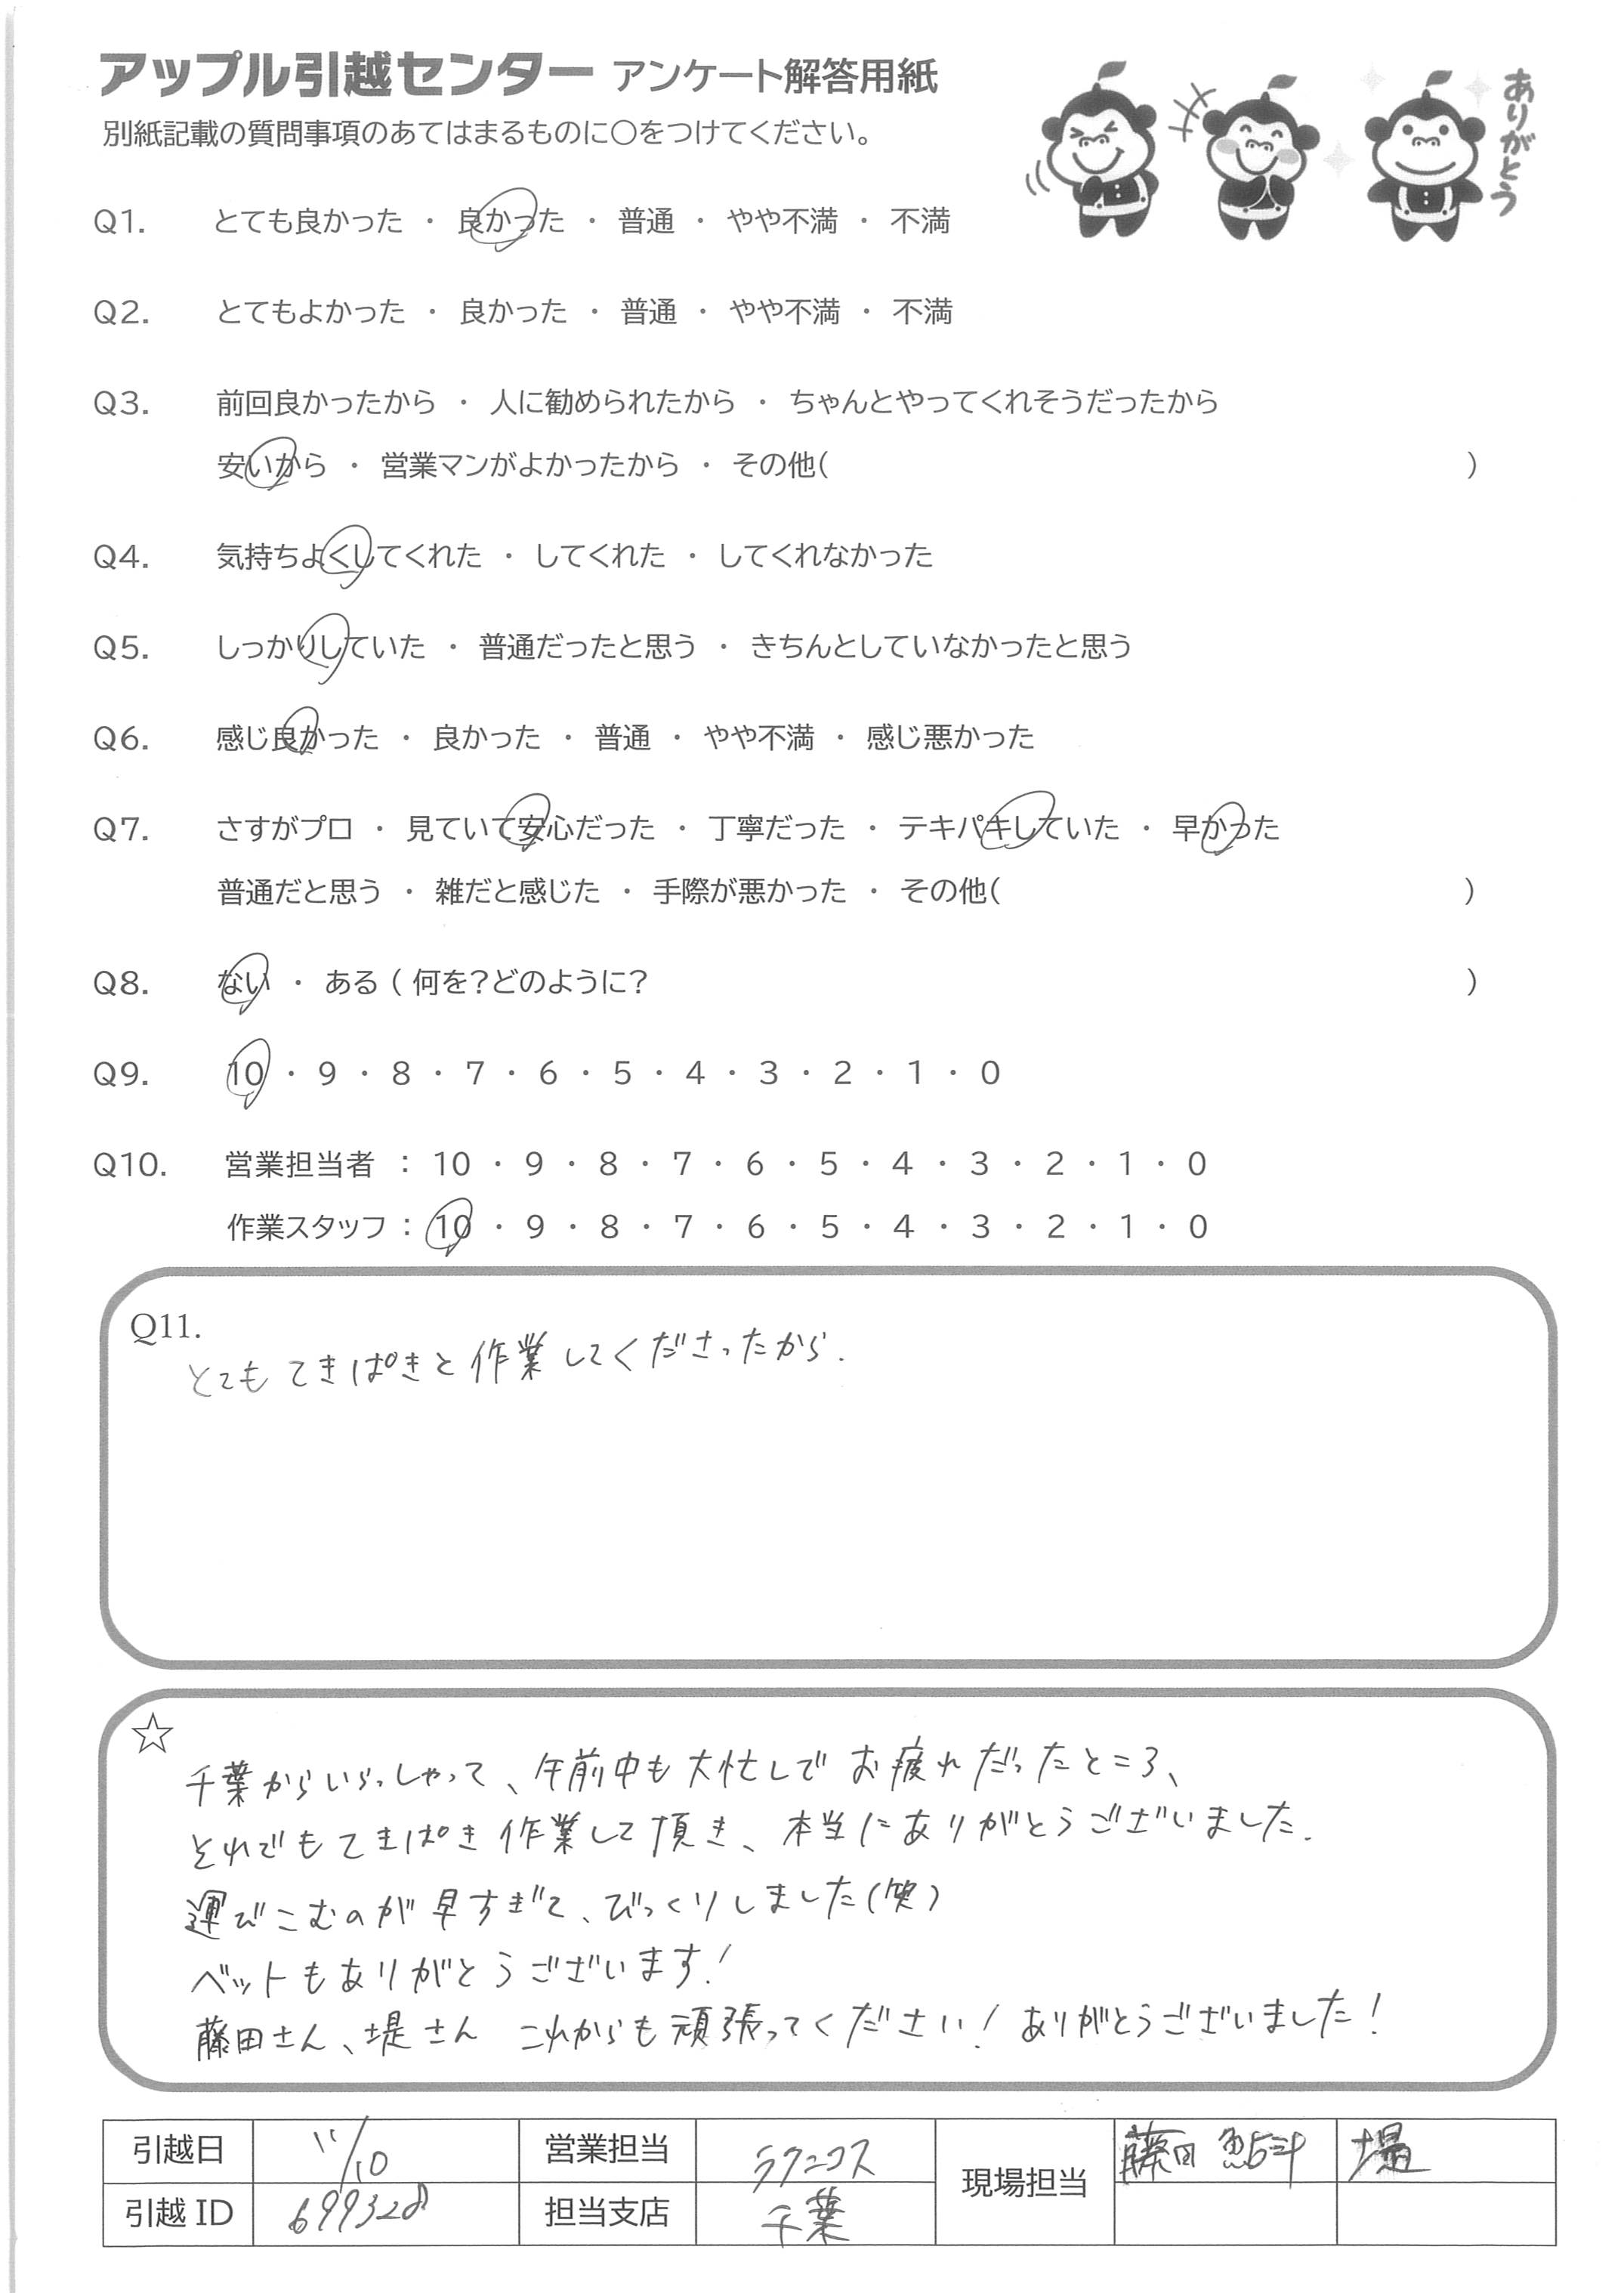 アップル引越センター アンケート解答用紙
別紙記載の質問事項のあてはまるものに○をつけてください。
ありがとう
Q1. とても良かった ・ 良かった ・ 普通 ・ やや不満 ・ 不満
Q2. とてもよかった ・ 良かった ・ 普通 ・ やや不満 ・ 不満
Q3. 前回良かったから ・ 人に勧められたから ・ ちゃんとやってくれそうだったから
安いから ・ 営業マンがよかったから ・ その他( )
Q4. 気持ちよくしてくれた ・ してくれた ・ してくれなかった
Q5. しっかりしていた ・ 普通だったと思う ・ きちんとしていなかったと思う
Q6. 感じ良かった ・ 良かった ・ 普通 ・ やや不満 ・ 感じ悪かった
Q7. さすがプロ ・ 見ていて安心だった ・ 丁寧だった ・ テキパキしていた ・ 早かった
普通だと思う ・ 雑だと感じた ・ 手際が悪かった ・ その他( )
Q8. ない ・ ある ( 何を?どのように? )
Q9. 10 ・ 9 ・ 8 ・ 7 ・ 6 ・ 5 ・ 4 ・ 3 ・ 2 ・ 1 ・ 0
Q10. 営業担当者 : 10 ・ 9 ・ 8 ・ 7 ・ 6 ・ 5 ・ 4 ・ 3 ・ 2 ・ 1 ・ 0
作業スタッフ : 10 ・ 9 ・ 8 ・ 7 ・ 6 ・ 5 ・ 4 ・ 3 ・ 2 ・ 1 ・ 0
Q11.
とても てきぱきと 作業 してくださったから.
☆
千葉からいらっしゃって、午前中も大忙しで お疲れだったところ、
それでもてきぱき作業して頂き、本当にありがとうございました.
運びこむのが早すぎて、びっくりしました(笑)
ベットもありがとうございます!
藤田さん、堤さん これからも頑張ってください! ありがとうございました!
引越日 11/10 営業担当 ラクニコス 現場担当 藤田 堤
引越 ID 6993328 担当支店 千葉